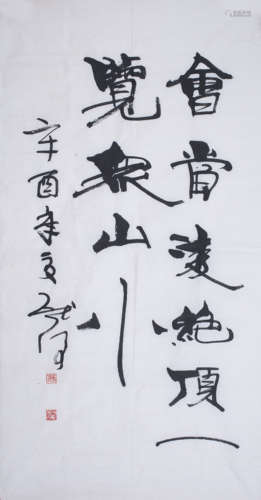 會當凌絕頂一
覽眾山小
辛酉年夏